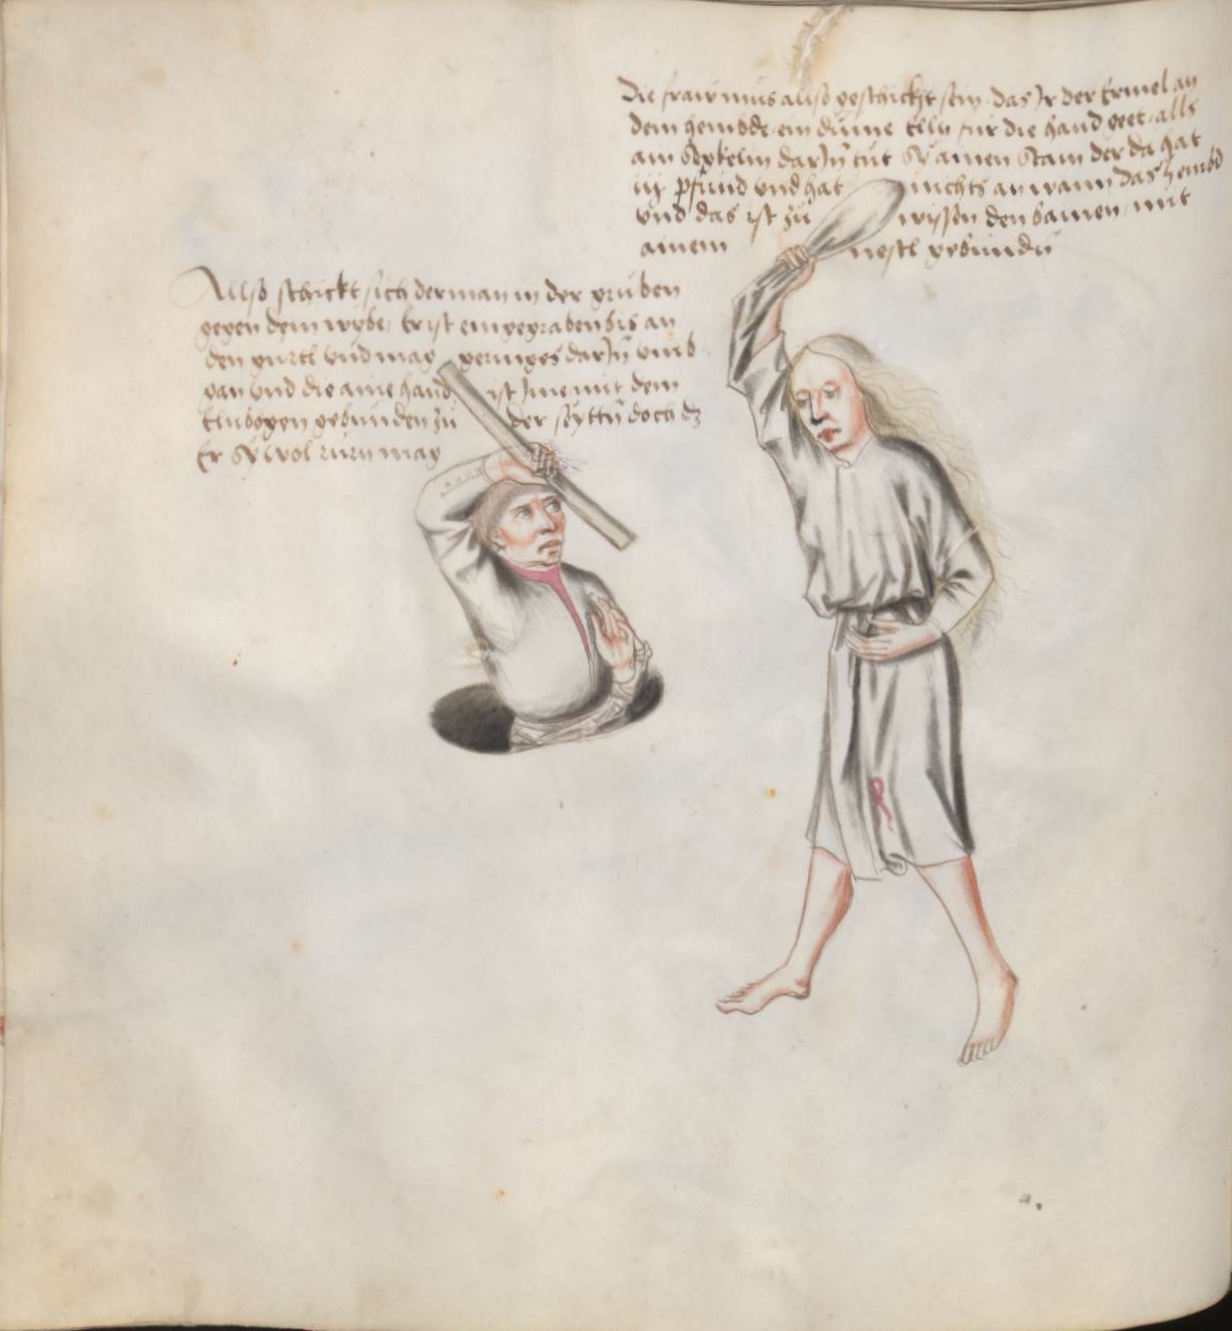 Die fraw mus allso geschickt sein das Ir der Ermel an
dem hembde ein dume elln für die hand geet alls
am Secklin darIn tut Sy ainen Stain der da hat
iij pfund vnd hat nichts an wann das hembd
vnd das ist zu den bainen mit
ainem nestl gebunden
Allso schickt sich der man in der gruben
gegen dem wybe Er ist eingegraben bis an
den gurtl vnd mag geringes darIn vmb
gan vnd die aine hand ist Ime mit dem
Elnbogen gebunden zu der seyttn doch dz
Er Sy wol rurn mag
a.